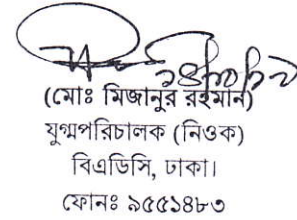 (মোঃ মিজানুর রহমান)
যুগ্মপরিচালক (নিওক)
বিএডিসি, ঢাকা।
ফোনঃ ৯৫৫১৪৮৩